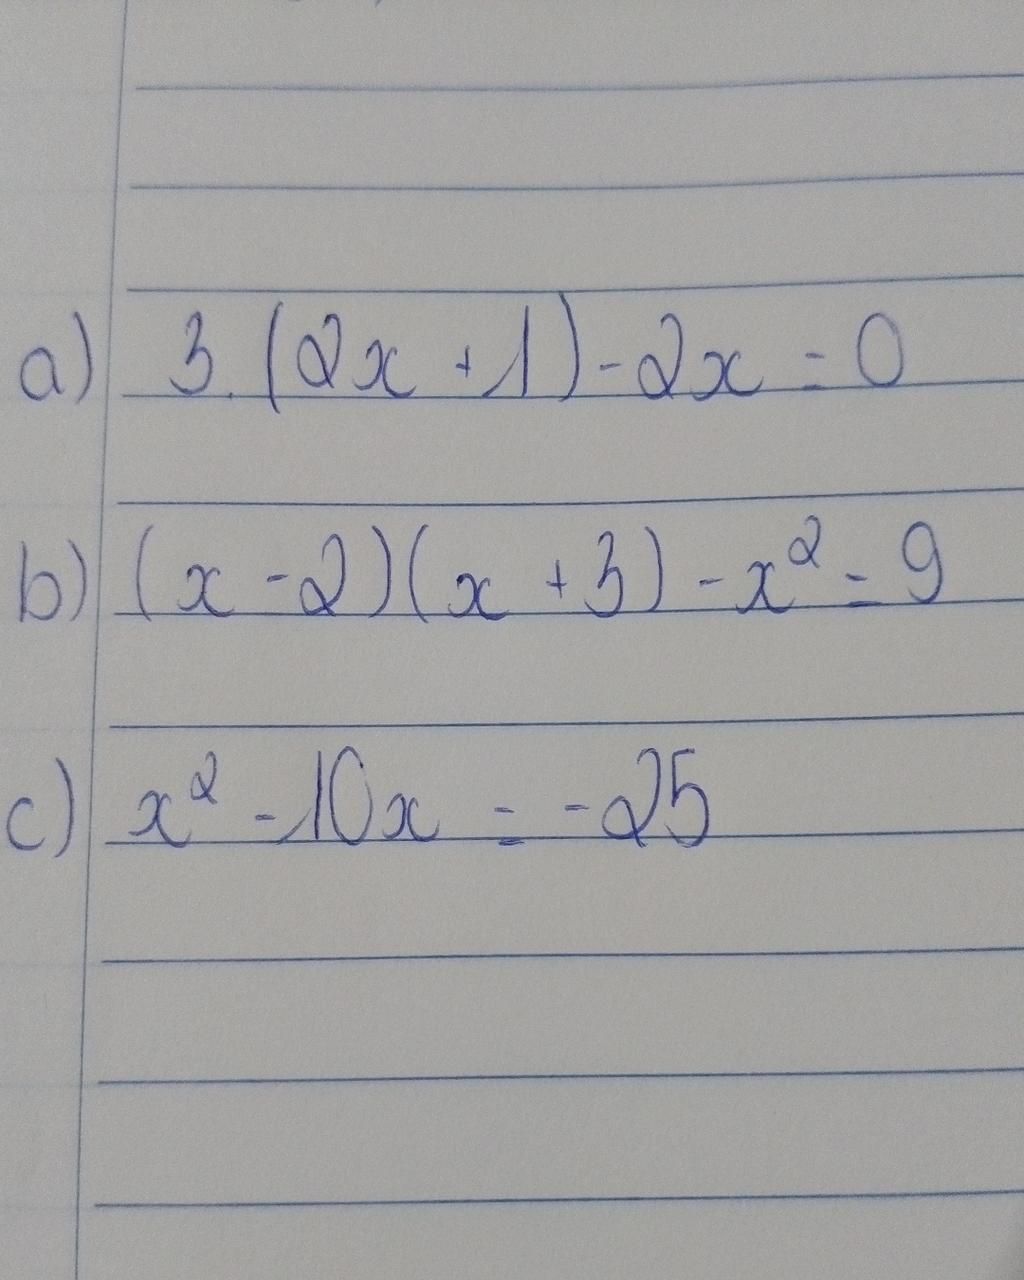 a) 3.(2x + 1) - 2x = 0
b) (x - 2)(x + 3) - x² = 9
c) x² - 10x = -25